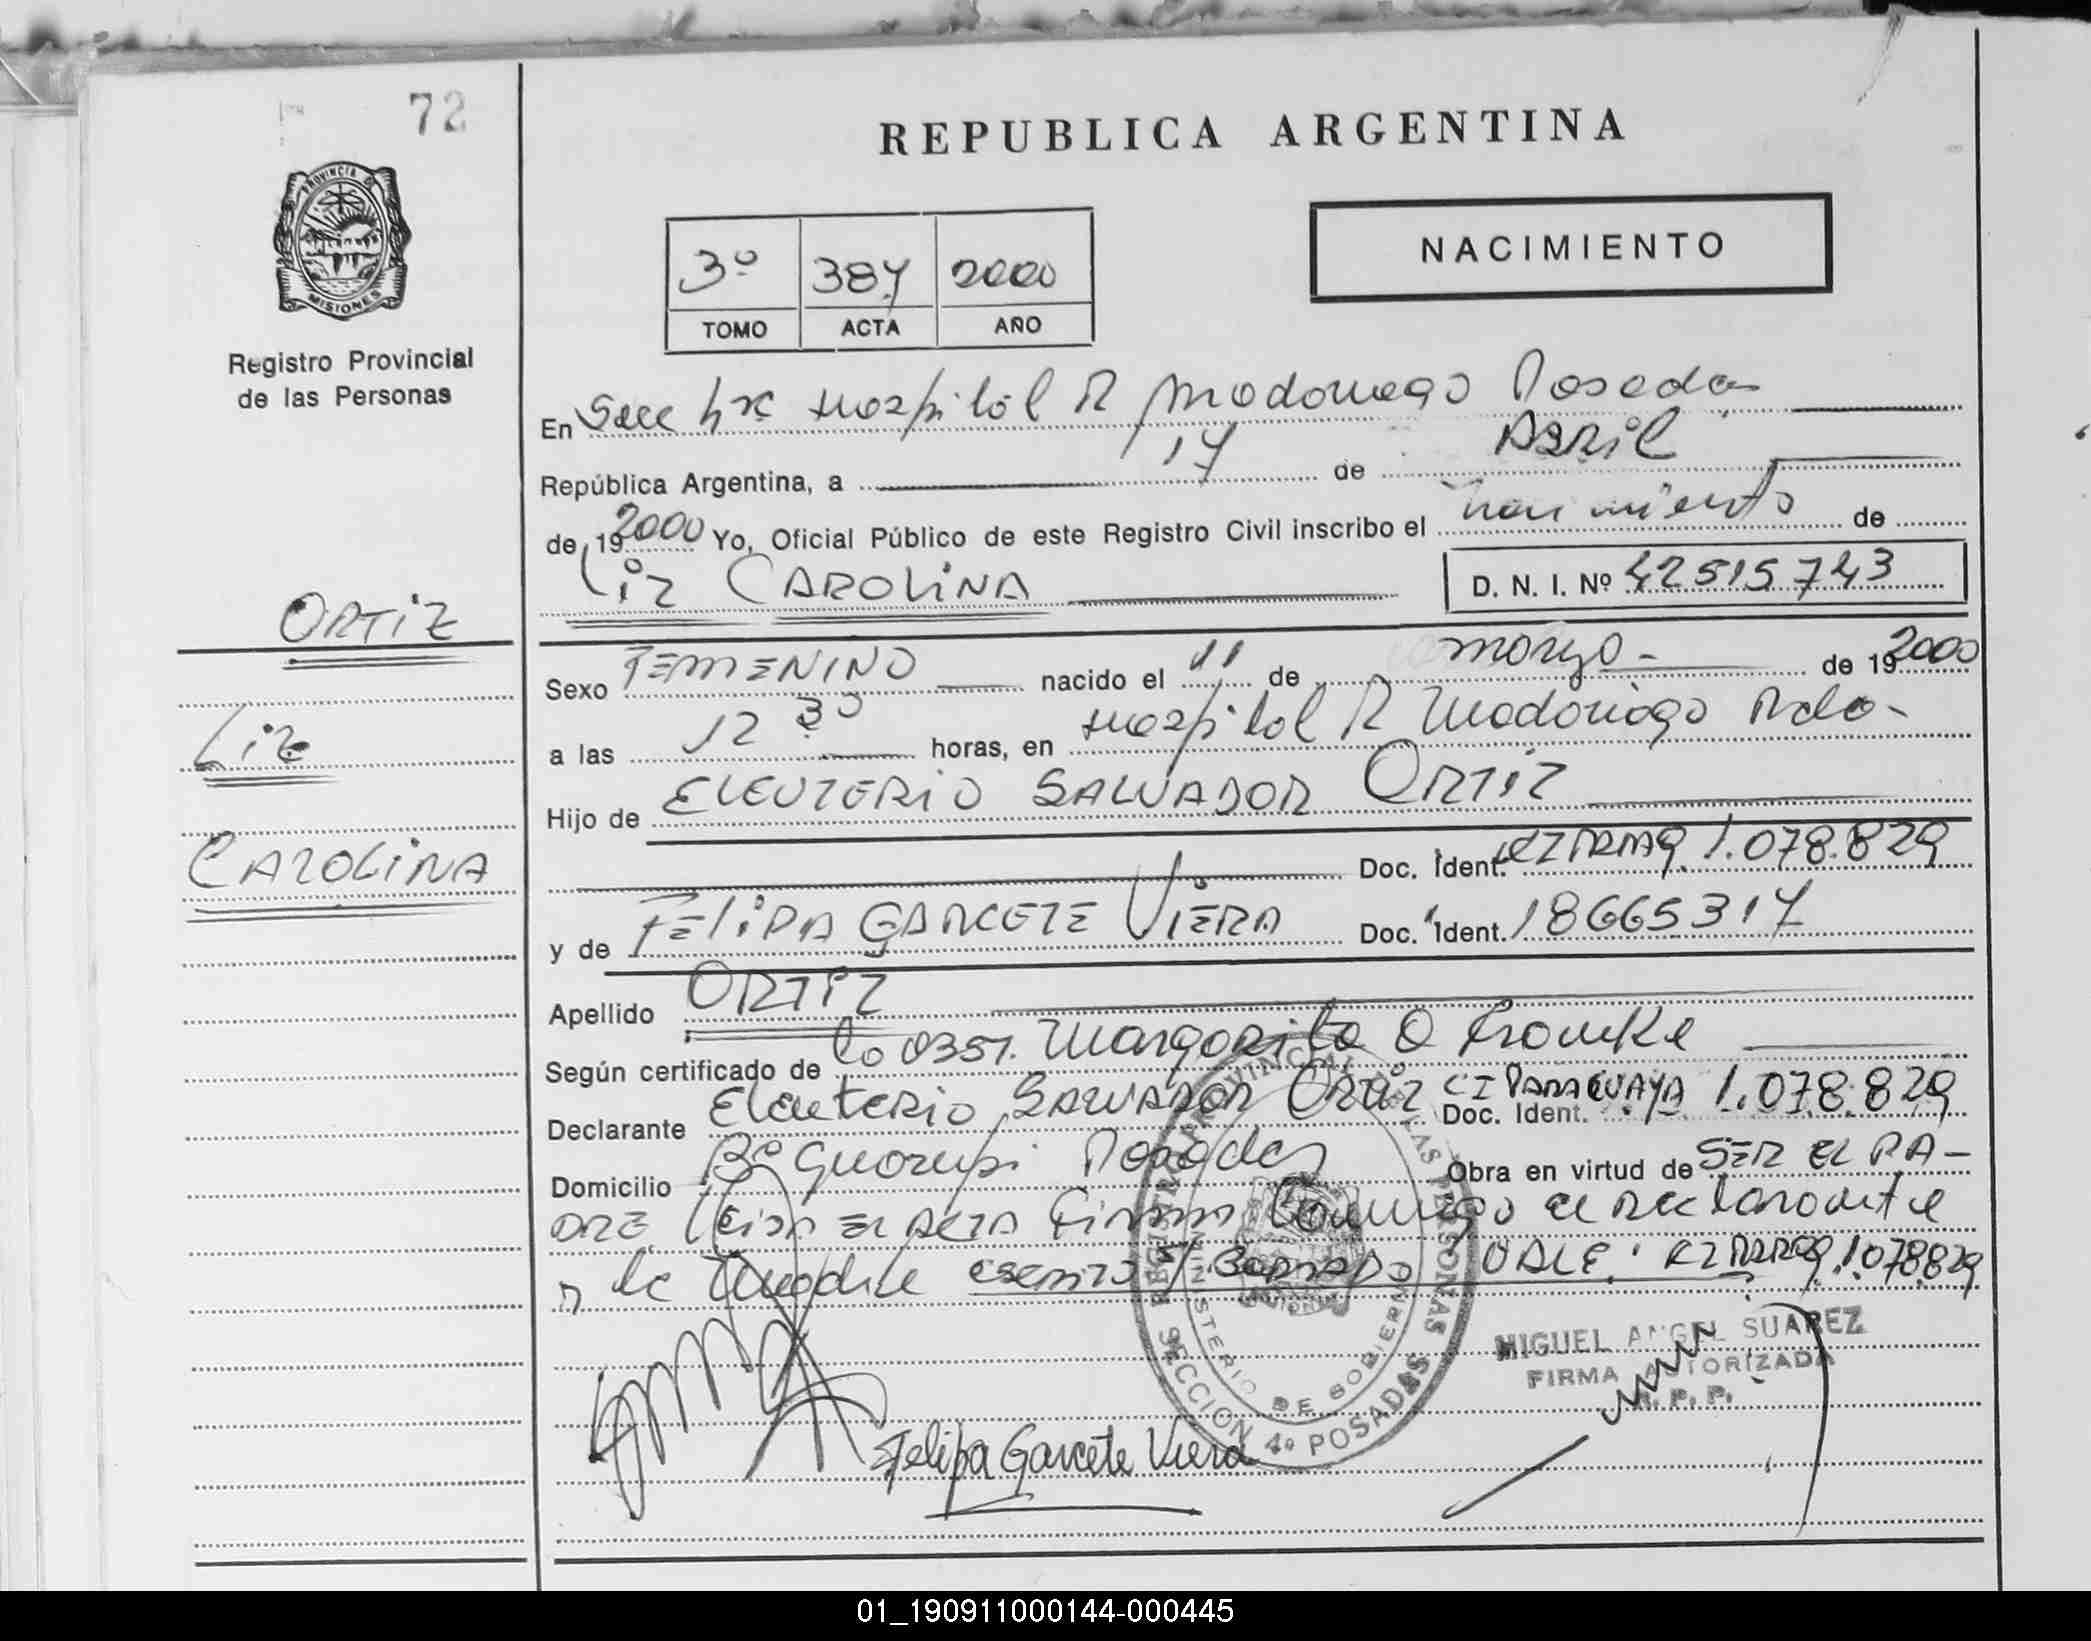 72
REPUBLICA ARGENTINA
PROVINCIA DE
MISIONES
Registro Provincial
de las Personas
3º 387 2000
TOMO ACTA AÑO
NACIMIENTO
En Secc Hospital R Madariaga Posadas
República Argentina, a 17 de ABRIL
de 19 2000 Yo, Oficial Público de este Registro Civil inscribo el nacimiento de
Liz CAROLINA D. N. I. Nº 42515743
ORTIZ
Liz
CAROLINA
Sexo FEMENINO nacido el 11 de marzo - de 19 2000
a las 12 30 horas, en Hospital R Madariaga Pdas-
Hijo de ELEUTERIO SALVADOR ORTIZ
Doc. Ident. CI PARAG 1.078.829
y de FELIPA GARCETE VIERA Doc. Ident. 18665317
Apellido ORTIZ
Según certificado de la Obst. Margarita O
Declarante Eleuterio SALVADOR ORTIZ CI PARAGUAYA Doc. Ident. 1.078.829
Domicilio Bº Guarupi Posadas Obra en virtud de SER EL PA-
DRE Leida EL ACTA Firma Conmigo el declarante
y la madre ESCRITO S/ BORRADO VALE: CI PARAG 1.078829
REGISTRO PROVINCIAL DE LAS PERSONAS
MINISTERIO DE GOBIERNO
SECCION 4º POSADAS
MIGUEL ANGEL SUAREZ
FIRMA AUTORIZADA
R. P. P.
Felipa Garcete Viera
01_190911000144-000445